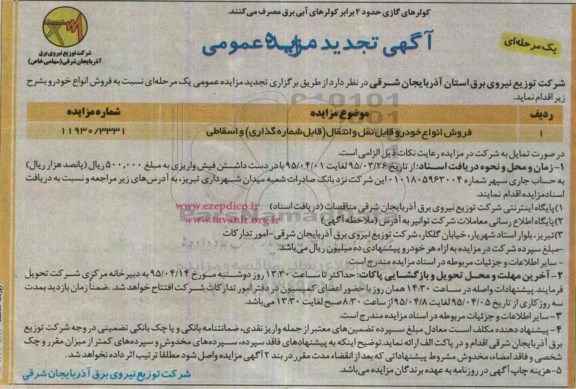 کولرهای گازی حدود ۲ برابر کولرهای آبی برق مصرف می‌کنند.
یک مرحله‌ای
آگهی تجدید مزایده عمومی
شرکت توزیع نیروی برق
آذربایجان شرقی (سهامی خاص)
شرکت توزیع نیروی برق استان آذربایجان شرقی در نظر دارد از طریق برگزاری تجدید مزایده عمومی یک مرحله‌ای نسبت به فروش انواع خودرو بشرح
زیر اقدام نماید.
ردیف موضوع مزایده شماره مزایده
۱ فروش انواع خودرو قابل نقل و انتقال (قابل شماره گذاری) و اسقاطی ۱۱۹۳۰/۳۳۳۱
در صورت تمایل به شرکت در مزایده رعایت نکات ذیل الزامی است.
۱- زمان و محل و نحوه دریافت اسناد: از تاریخ ۹۵/۰۳/۲۶ لغایت ۹۵/۰۴/۰۱ با در دست داشتن فیش واریزی به مبلغ ۵۰۰,۰۰۰ ریال (پانصد هزار ریال)
به حساب جاری سپهر شماره ۰۱۰۱۸۰۵۹۶۳۰۰۴ این شرکت نزد بانک صادرات شعبه میدان شهرداری تبریز، به آدرس‌های زیر مراجعه و نسبت به دریافت
اسناد مزایده اقدام نمایند.
۱) پایگاه اینترنتی شرکت توزیع نیروی برق آذربایجان شرقی مناقصات (دریافت اسناد) www.ezepdico.ir
۲) پایگاه اطلاع رسانی معاملات شرکت توانیر به آدرس (ملاحظه آگهی) www.tavanir.org.ir
۳) تبریز، بلوار استاد شهریار، خیابان گلکار، شرکت توزیع نیروی برق آذربایجان شرقی- امور تدارکات
- مبلغ سپرده شرکت در مزایده به ازاء هر خودرو پیشنهادی ده میلیون ریال می‌باشد.
- سایر اطلاعات و جزئیات مربوطه در اسناد مزایده مندرج است.
۲- آخرین مهلت و محل تحویل و بازگشایی پاکات: حداکثر تا ساعت ۱۳:۳۰ روز دوشنبه مورخ ۹۵/۰۴/۱۴ به دبیرخانه مرکزی شرکت تحویل
فرمایند پیشنهادات واصله در ساعت ۱۴:۳۰ همان روز با حضور اعضای کمیسیون در دفتر امور تدارکات شرکت افتتاح خواهد شد. ضمناً زمان بازدید بمدت
سه روز کاری از تاریخ ۹۵/۰۴/۰۵ لغایت ۹۵/۰۴/۰۸ از ساعت ۸:۳۰ صبح لغایت ۱۳:۳۰ می‌باشد.
۳- سایر اطلاعات و جزئیات مربوطه در اسناد مزایده مندرج است.
۴- پیشنهاد دهنده مکلف است معادل مبلغ سپرده تضمین‌های معتبر از جمله واریز نقدی، ضمانتنامه بانکی و یا چک بانکی تضمینی در وجه شرکت توزیع
برق آذربایجان شرقی اقدام و در پاکت الف ارائه نماید. توضیح اینکه به پیشنهادهای فاقد سپرده، سپرده‌های مخدوش و سپرده‌های کمتر از میزان مقرر و چک
شخصی و فاقد امضاء، مخدوش مشروط پیشنهاداتی که بعد از انقضاء مدت مقرر در بند ۲ آگهی مزایده واصل شود مطلقاً ترتیب اثر داده نخواهد شد.
۵- هزینه چاپ آگهی در روزنامه به عهده برندگان مزایده می‌باشد.
شرکت توزیع نیروی برق آذربایجان شرقی